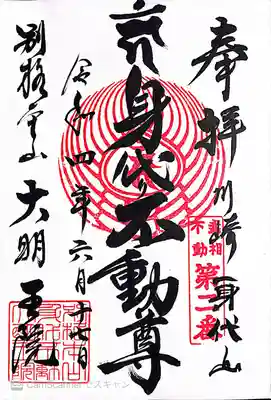 奉拝 川崎 身代山
武相
不動
第二番
身代り不動尊
令和四年六月十七日
別格本山 大明王院
CamScannerでスキャン